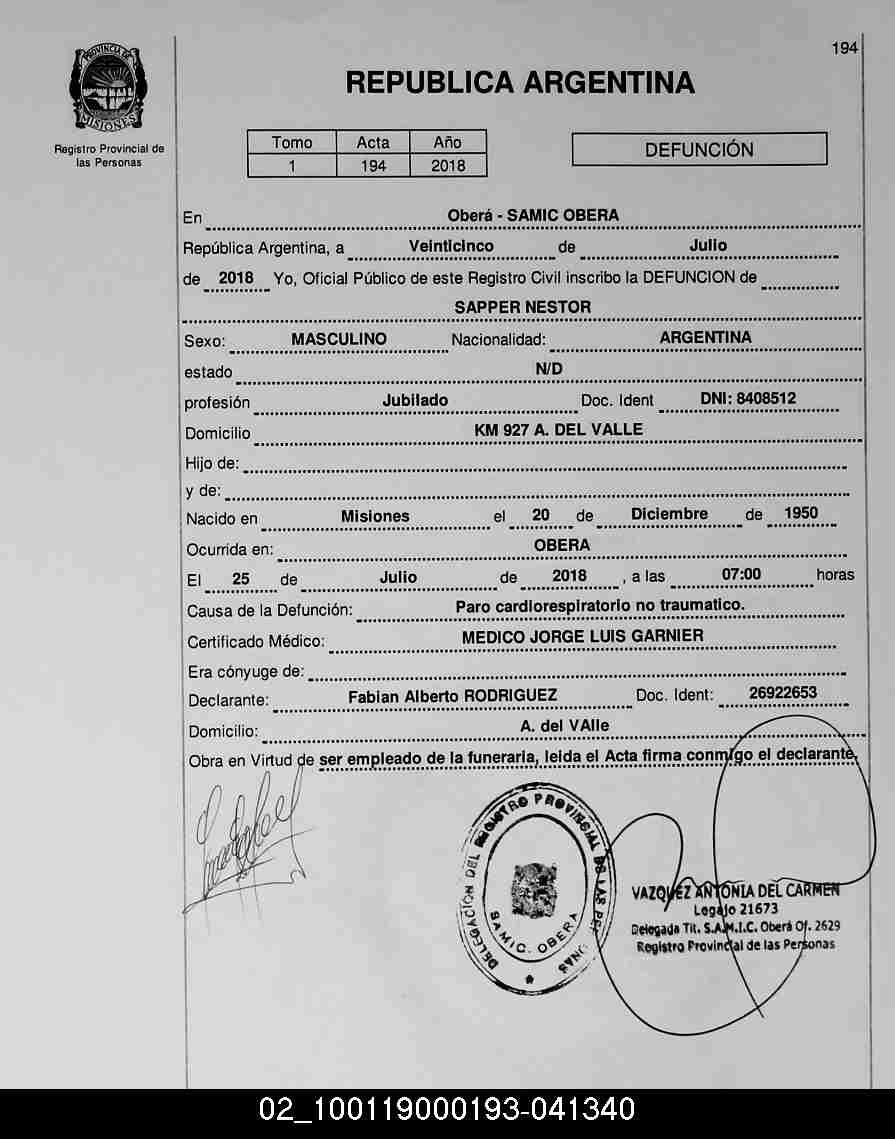 194
PROVINCIA DE
MISIONES
Registro Provincial de
las Personas
REPUBLICA ARGENTINA
Tomo Acta Año
1 194 2018
DEFUNCIÓN
En Oberá - SAMIC OBERA
República Argentina, a Veinticinco de Julio
de 2018 Yo, Oficial Público de este Registro Civil inscribo la DEFUNCION de
SAPPER NESTOR
Sexo: MASCULINO Nacionalidad: ARGENTINA
estado N/D
profesión Jubilado Doc. Ident DNI: 8408512
Domicilio KM 927 A. DEL VALLE
Hijo de:
y de:
Nacido en Misiones el 20 de Diciembre de 1950
Ocurrida en: OBERA
El 25 de Julio de 2018 , a las 07:00 horas
Causa de la Defunción: Paro cardiorespiratorio no traumatico.
Certificado Médico: MEDICO JORGE LUIS GARNIER
Era cónyuge de:
Declarante: Fabian Alberto RODRIGUEZ Doc. Ident: 26922653
Domicilio: A. del VAlle
Obra en Virtud de ser empleado de la funeraria, leida el Acta firma conmigo el declarante.
DELEGACIÓN DEL REGISTRO PROVINCIAL DE LAS PERSONAS
SAMIC. OBERA
VAZQUEZ ANTONIA DEL CARMEN
Legajo 21673
Delegada Tit. S.A.M.I.C. Oberá Of. 2629
Registro Provincial de las Personas
02_100119000193-041340